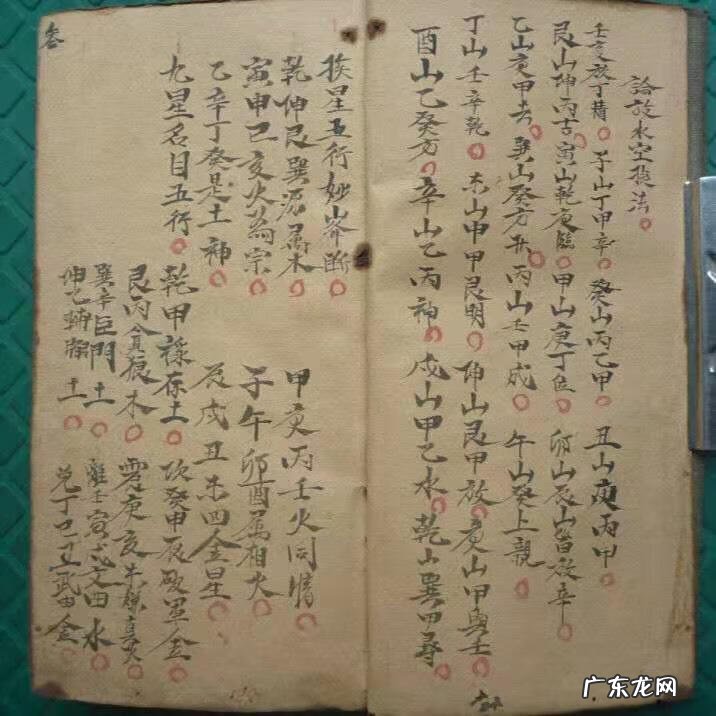 論放水空投法
壬亥放丁猪 子山丁甲辛 癸山丙乙甲 丑山庚丙甲
艮山坤丙古 寅山乾庚臨 甲山庚丁位 卯山辰山皆放辛
乙山庚甲去 巽山癸方 丙山壬甲成 午山癸上親
丁山壬辛乾 未山申甲艮明 坤山艮甲放 庚山甲與壬
酉山乙癸方 辛山乙丙神 戌山甲乙水 乾山巽甲尋
挨星五行妙山峯断 甲庚丙壬火同情
乾坤艮巽原属木 子午卯酉属相火
寅申巳亥火為宗 辰戌丑未四金星
乙辛丁癸是土神
九星名目五行
乾甲祿存土 坎癸申辰破軍金
艮丙貪狼木 震庚亥未廉貞火
巽辛巨門土 離壬寅戌文曲水
坤乙輔弼土 兌丁巳丑武曲金
叁
广东龙网